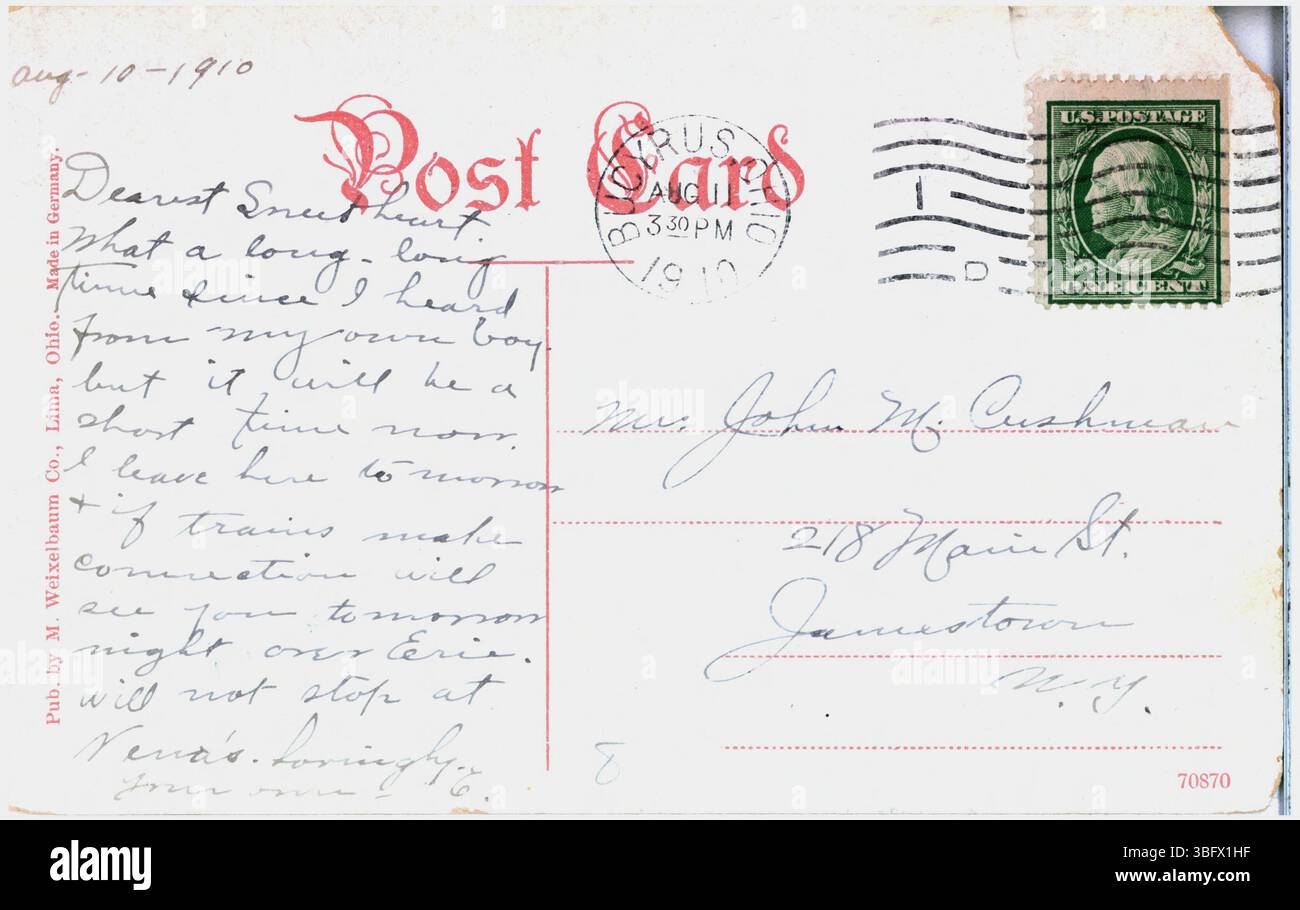 Aug-10-1910
Post Card
BUCYRUS, OHIO
AUG 11
3 30 PM
1910
1
D
U.S. POSTAGE
ONE CENT
Dearest Sweetheart
What a long-long
time since I heard
from my own boy.
but it will be a
short time now.
I leave here tomorrow
& if trains make
connection will
see you tomorrow
night over Erie.
will not stop at
Lovingly
your own - E.
Mr. John M. Cushman
218 Main St.
Jamestown
N.Y.
8
70870
Pub. by M. Weixelbaum Co., Lima, Ohio. Made in Germany.
alamy
Image ID: 3BFX1HF
www.alamy.com